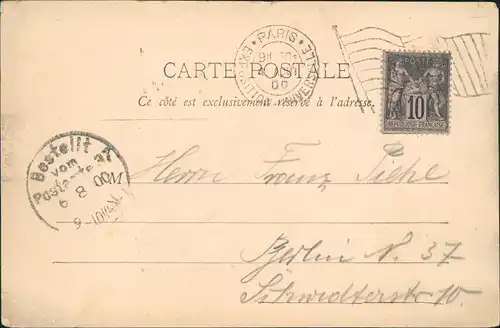 PARIS
EXPOSITION UNIVERSELLE
00
CARTE POSTALE
Ce côté est exclusivement réservé à l'adresse.
10
REPUBLIQUE FRANÇAISE
Bestellt
vom
Postamte
6 8 00
9-10
M
Herrn Franz Piehl
Berlin N. 37
Schwedterstr 10.